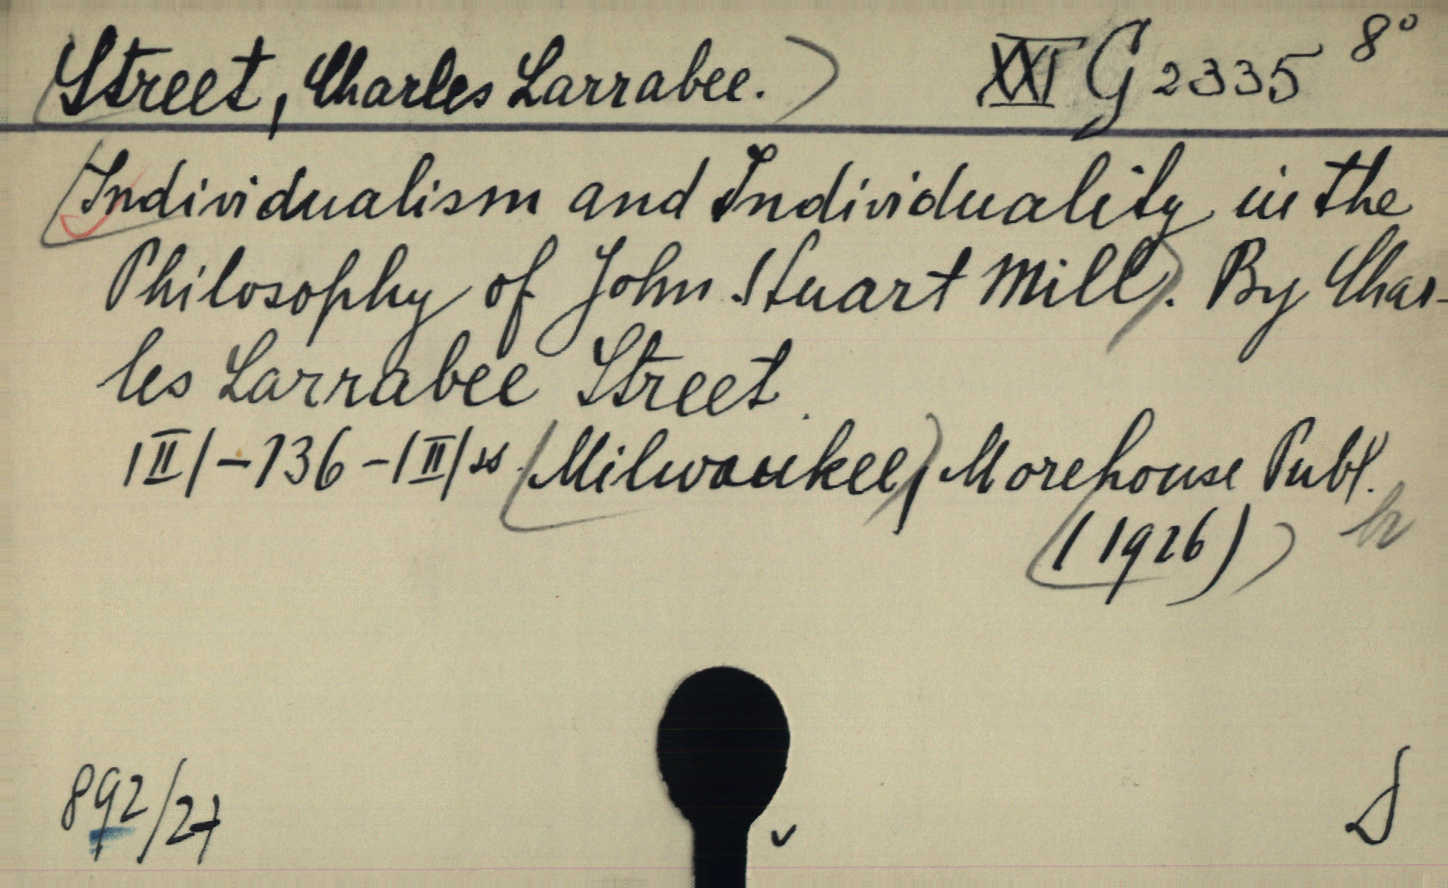 Street, Charles Larrabee. XXI G 2335 8°
Individualism and Individuality in the
Philosophy of John Stuart Mill. By Char-
les Larrabee Street.
|II|-136-|II|ss. Milwaukee, Morehouse Publ.
(1926)
892/27